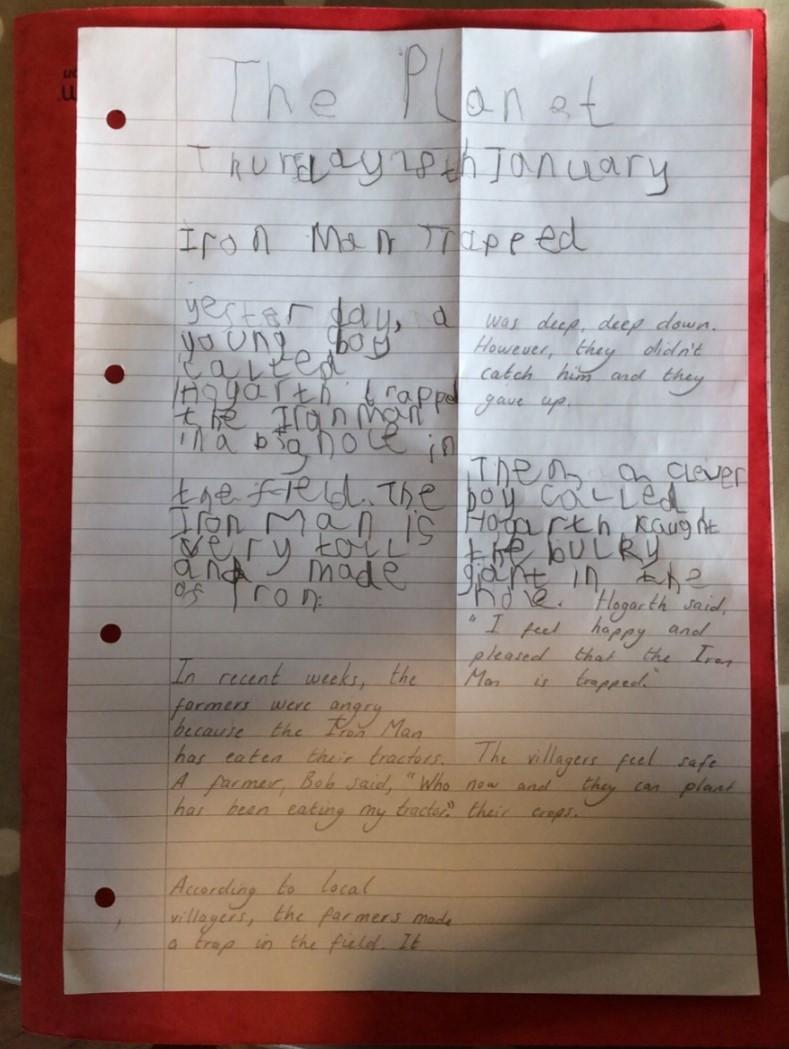 The Planet
Thursday 18th January
Iron Man Trapped
yesterday, a
young boy
called
Hogarth trapped
the Iron Man
in a big hole in
the field. The
Iron Man is
very tall
and made
of Iron.
In recent weeks, the
farmers were angry
because the Iron Man
has eaten their tractors.
A farmer, Bob said, "Who
has been eating my tractor?"
According to local
villagers, the farmers made
a trap in the field. It
was deep, deep down.
However, they didn't
catch him and they
gave up.
Then, a clever
boy called
Hogarth kaught
the bulky
giant in the
hole. Hogarth said,
"I feel happy and
pleased that the Iron
Man is trapped."
The villagers feel safe
now and they can plant
their crops.